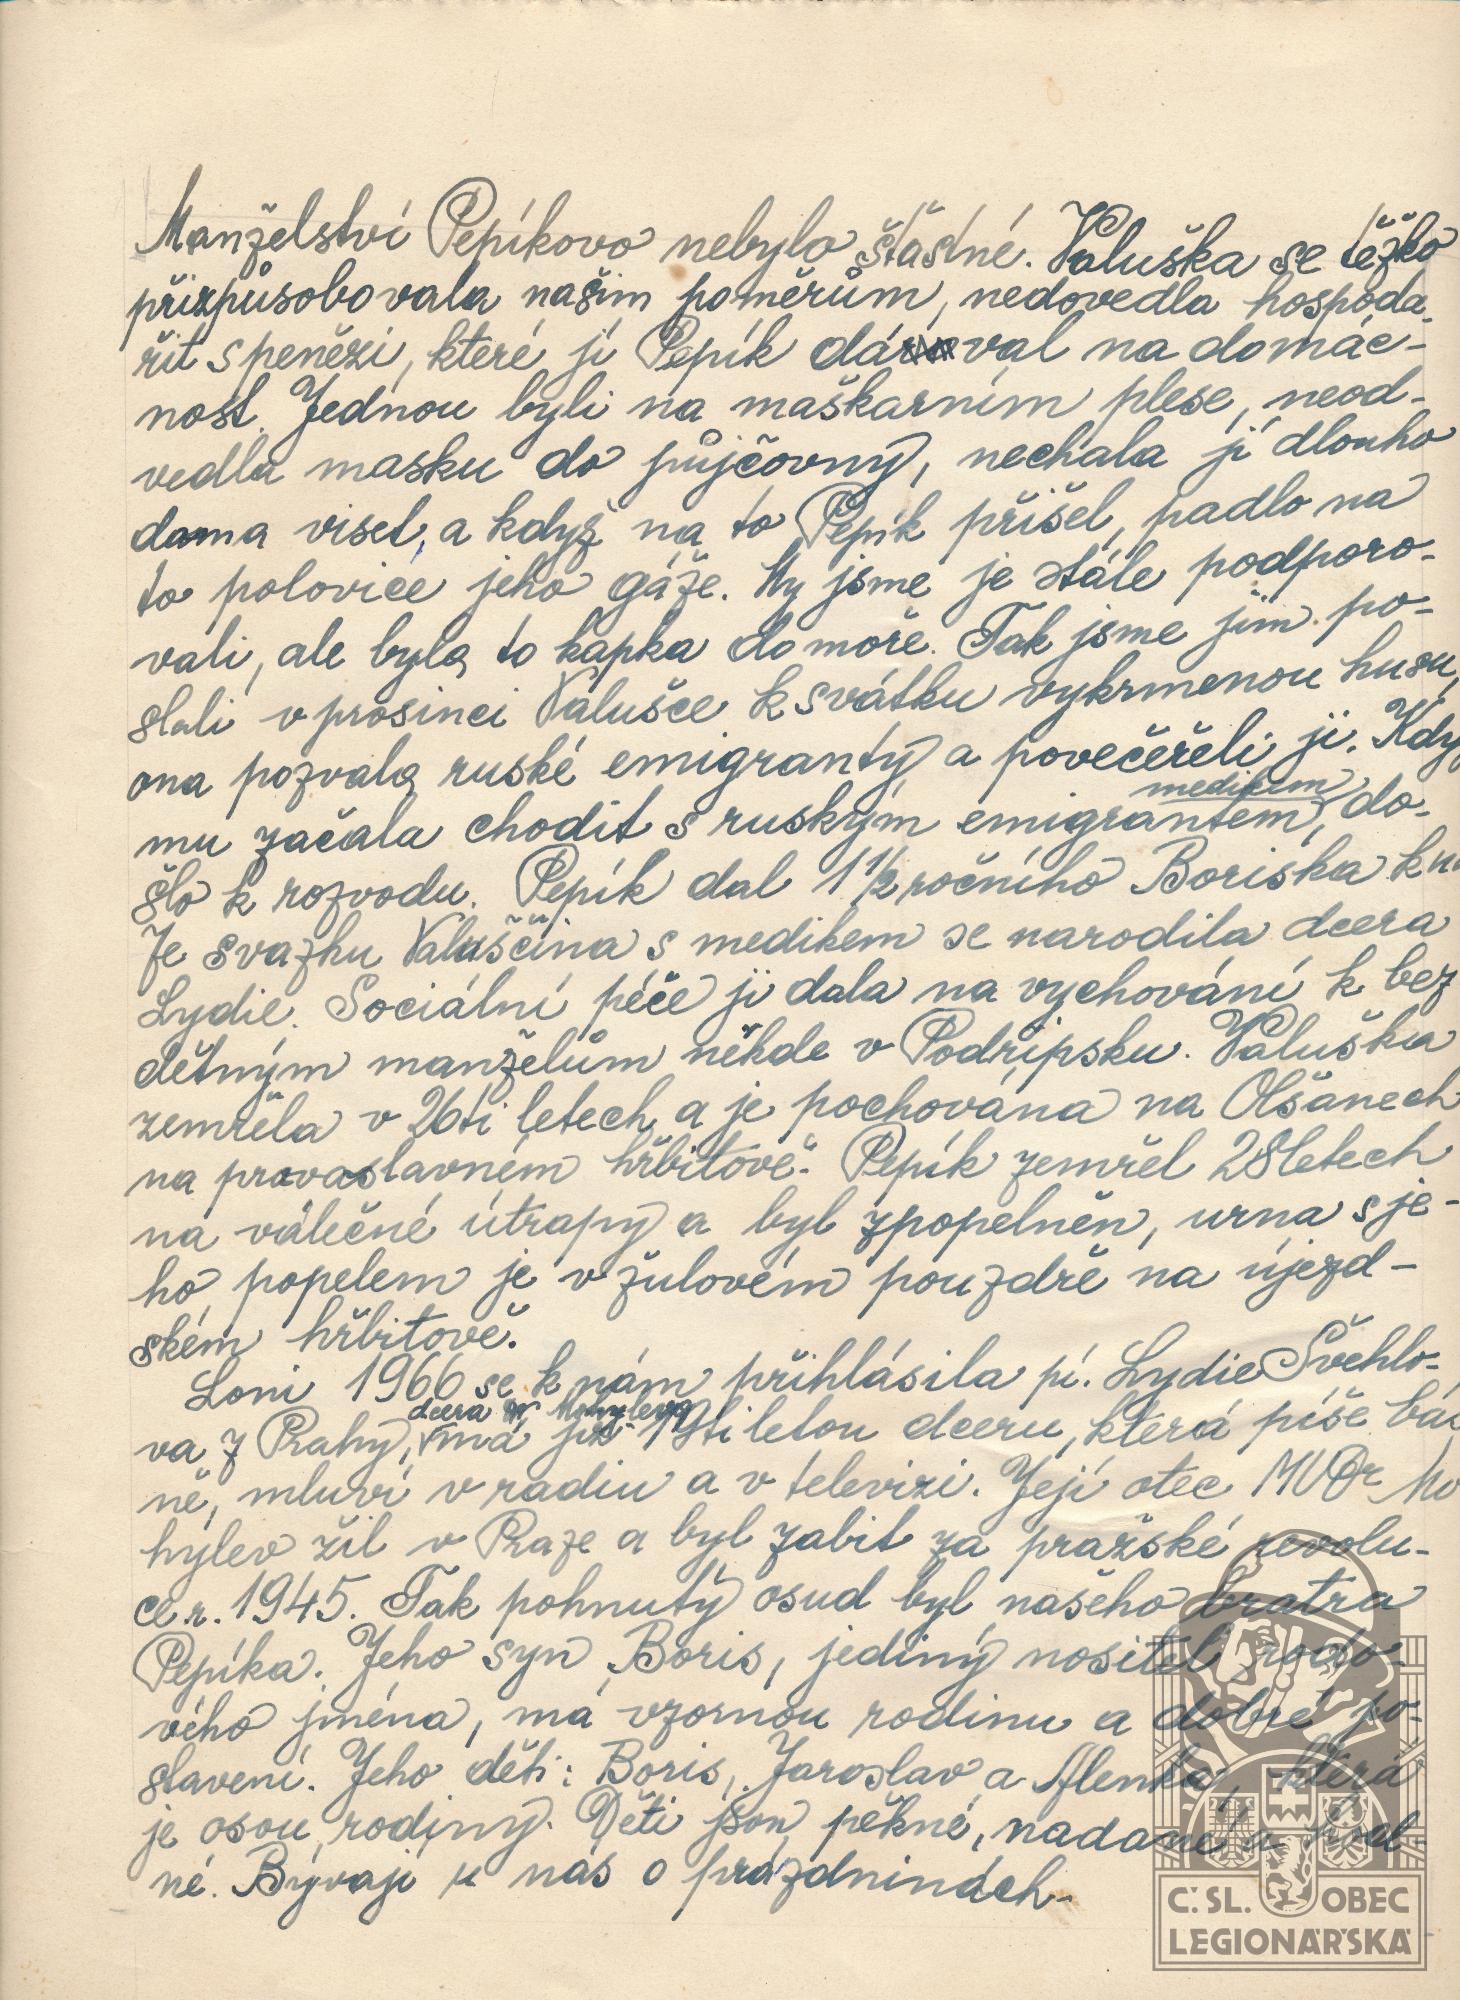 Manželství Pepíkovo nebylo šťastné. Valuška se těžko
přizpůsobovala našim poměrům, nedovedla hospoda-
řit s penězi, které jí Pepík dával na domác-
nost. Jednou byli na maškarním plese, neod-
vedla masku do půjčovny, nechala ji dlouho
doma viset, a když na to Pepík přišel, padlo na
to polovice jeho gáže. My jsme je stále podporo-
vali, ale byla to kapka do moře. Tak jsme jim po-
slali v prosinci Valušce k svátku vykrmenou husu,
ona pozvala ruské emigranty a povečeřeli ji. Kdy
mu začala chodit s ruským emigrantem, medikem, do-
šlo k rozvodu. Pepík dal 1 1/2 ročního Boriska k
Ze svazku Valuščina s medikem se narodila dcera
Lydie. Sociální péče ji dala na vychování k bez
dětným manželům někde v Podřipsku. Valuška
zemřela v 26ti letech a je pochována na Olšanech
na pravoslavném hřbitově. Pepík zemřel 28letech
na válečné útrapy a byl zpopelněn, urna s je-
ho popelem je v žulovém pouzdře na újezd-
ském hřbitově.
Loni 1966 se k nám přihlásila pí. Lydie Švehlo-
va z Prahy, dcera Mohyleva má již 19ti letou dceru, která píše bás
ně, mluví v radiu a v televizi. Její otec MUDr Mo
hylev žil v Praze a byl zabit za pražské revolu-
ce r. 1945. Tak pohnutý osud byl našeho bratra
Pepíka. Jeho syn Boris, jediný nositel rodo-
vého jména, má vzornou rodinu a dobré po-
slavení. Jeho děti: Boris, Jaroslav a Alenka, která
je osou rodiny. Děti jsou pěkné, nadané a hod-
né. Bývají u nás o prázdninách-
Č. SL. OBEC
LEGIONÁŘSKÁ